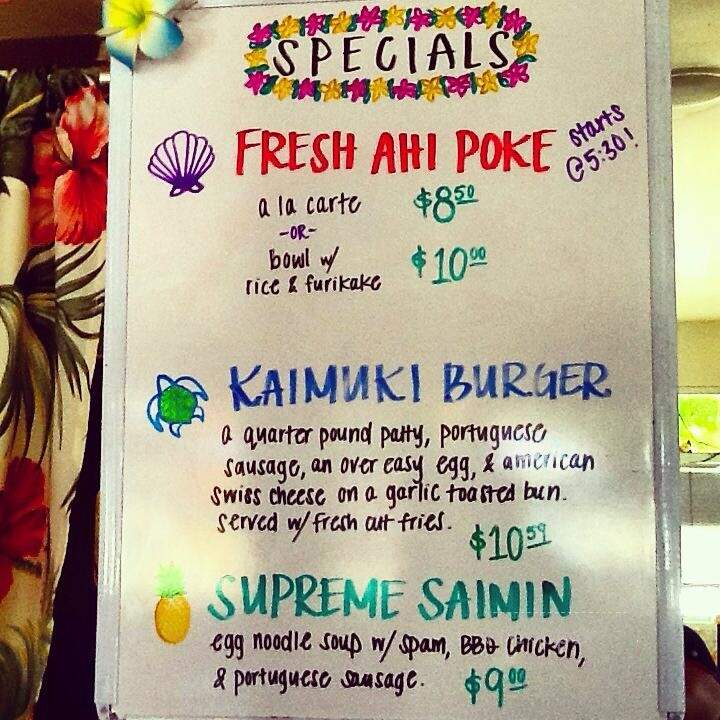 SPECIALS
FRESH AHI POKE
starts
@5:30!
a la carte $8.50
-OR-
bowl w/ $10.00
rice & furikake
KAIMUKI BURGER
a quarter pound patty, portuguese
sausage, an over easy egg, & american
swiss cheese on a garlic toasted bun.
served w/ fresh cut fries.
$10.59
SUPREME SAIMIN
egg noodle soup w/ spam, BBQ chicken,
& portuguese sausage. $9.00